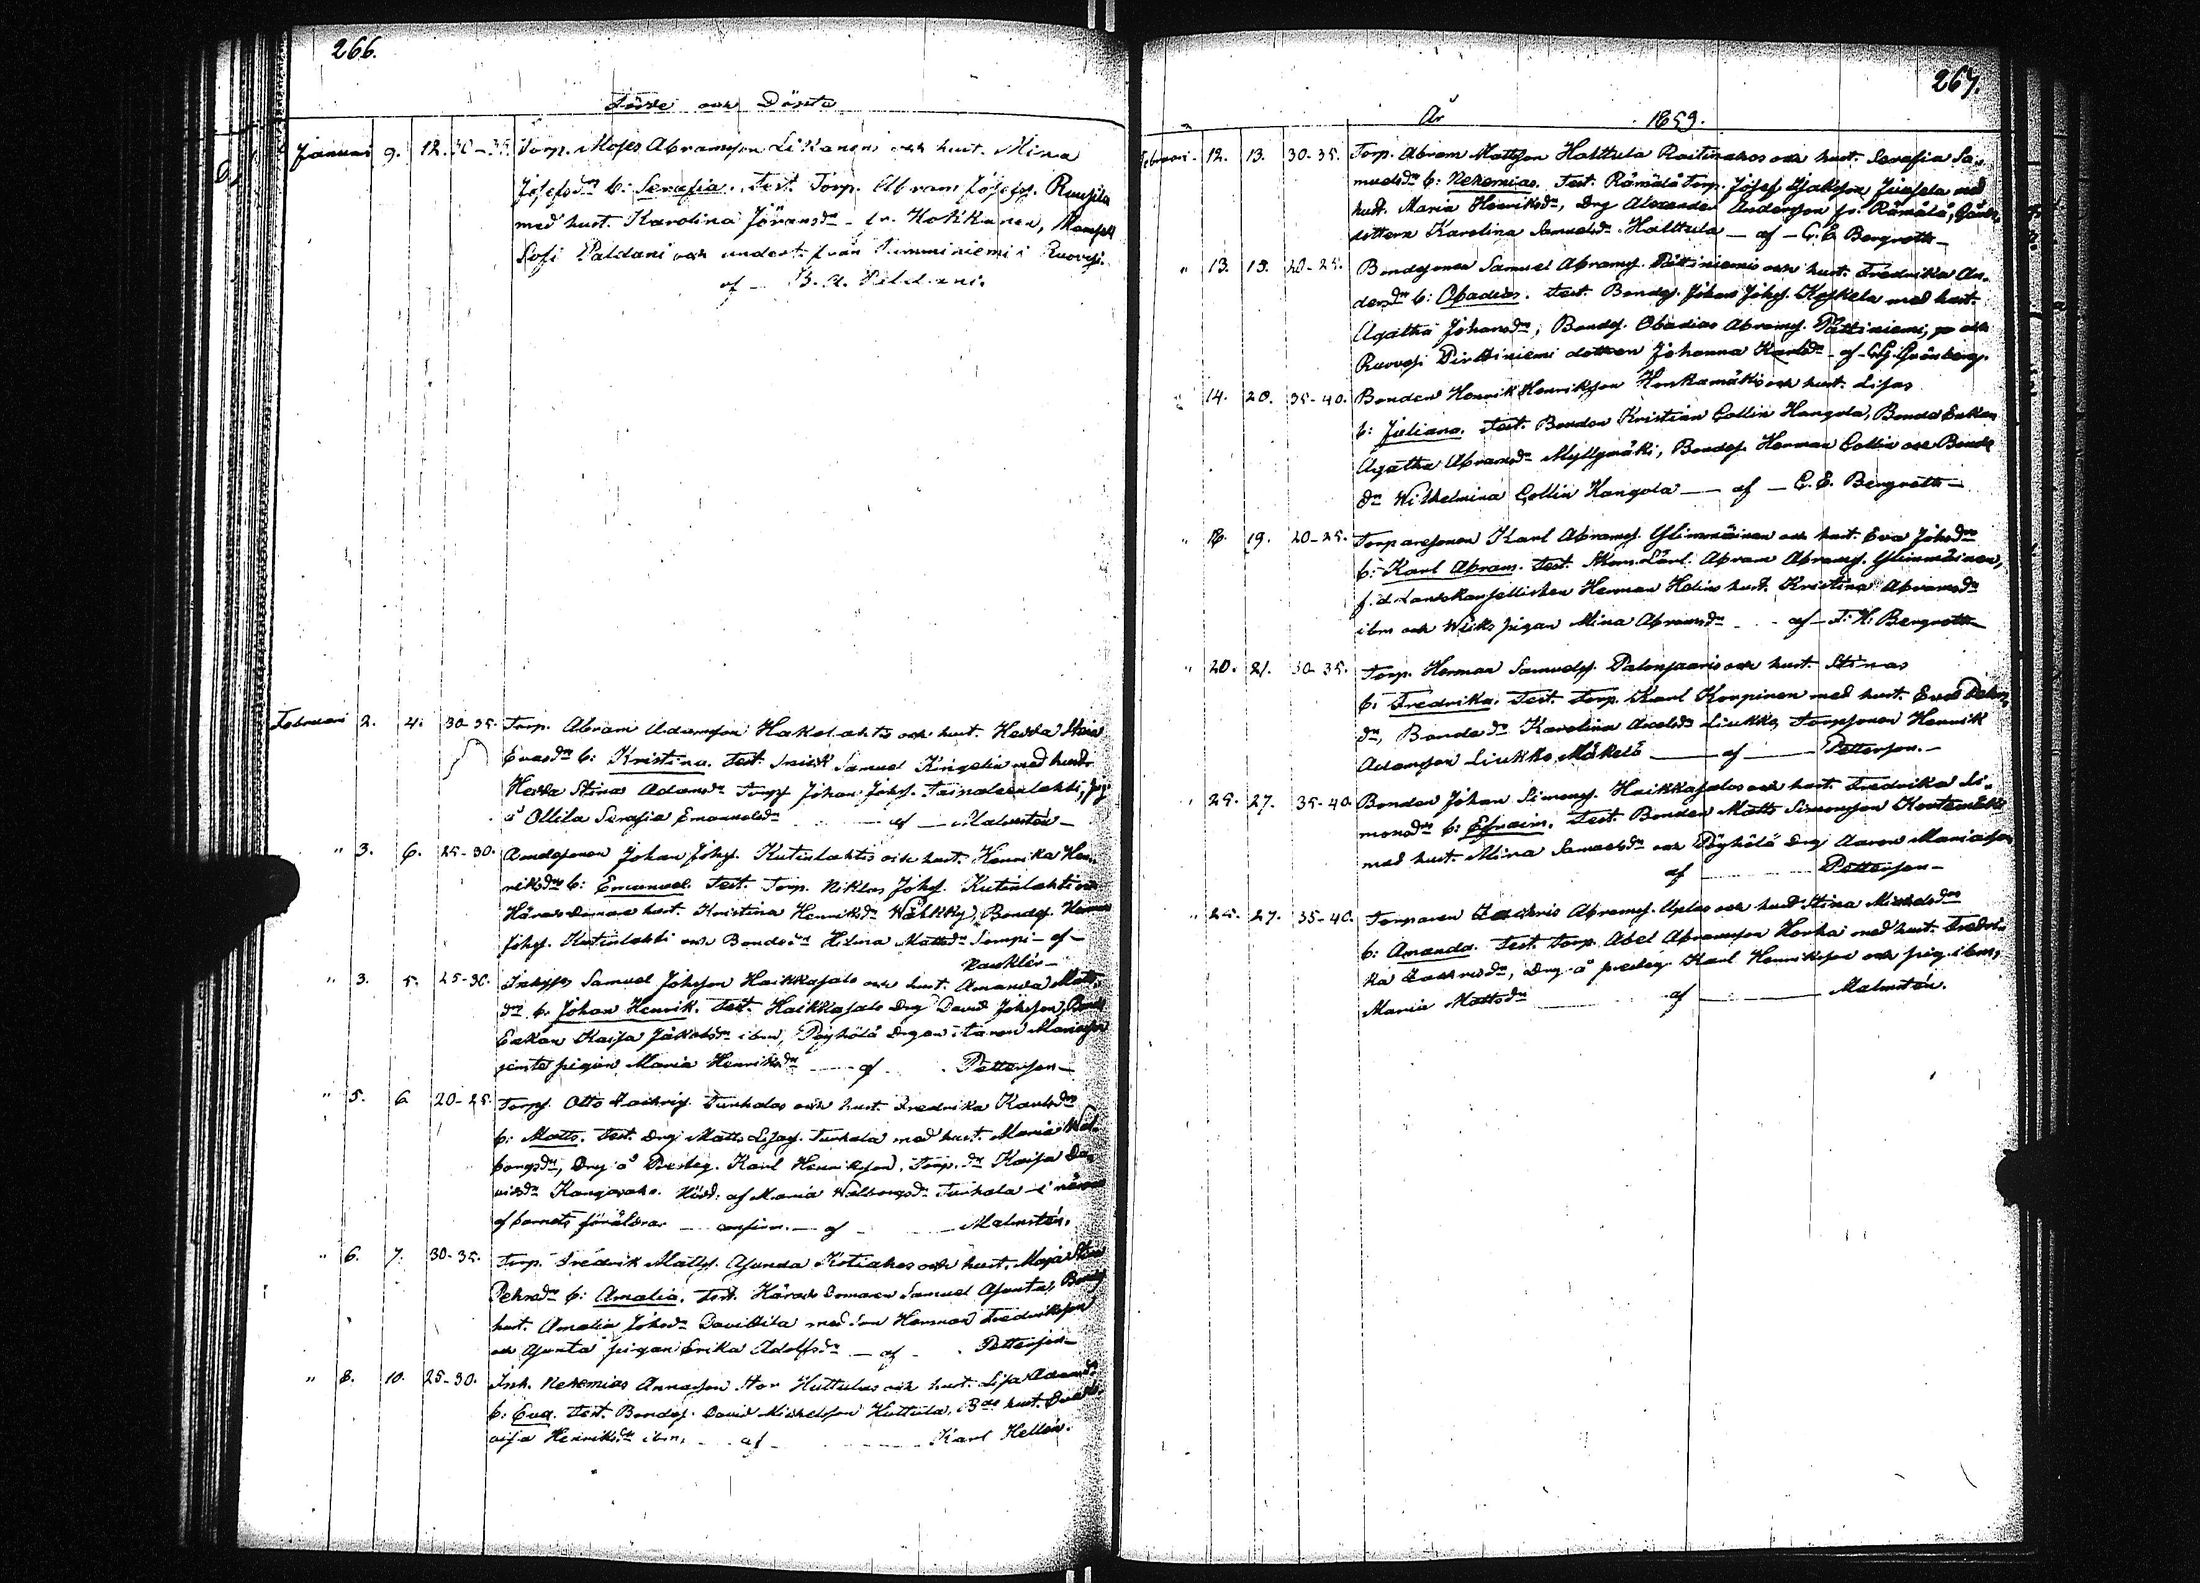 266.
Födde och Döpte
Januari 9. 12. 30-35. Torp. Moses Abramsson Likanens och hust. Mina
Josefsdr b: Serafia. Test. Torp. Abram Josefss. Ruusila
med hust. Karolina Jöransdr fr. Kokkanen, Mamsell
Sofi Paldani och underst. från Pimminiemi i Ruovesi.
af B. A. Paldani.
Februari 2. 4. 30-35. Torp. Abram Adamsson Hakolahtis och hust. Hedda Stina
Evasdr b: Kristina. Test. Samuel Kingelin med hustr.
Hedda Stina Adamsdr Torps Johan Johss. Taipaleenlahti, Pig.
å Ollila Serafia Emanuelsdr af Malmstén
" 3. 6. 25-30. Bondesonen Johan Johss. Kutinlahtis och hust. Henrika Hen-
riksdr b: Emanuel. Test. Torp. Niklas Johss. Kutinlahti och
Häradsdomare hust. Kristina Henriksdr Wähkky, Bondes. Herman
Johss. Kutinlahti och Bondedr Hilma Mattsdr Sompi - af
" 3. 5. 25-30. Inhyss. Samuel Johsson Haikkasalo och hust. Amanda Matts-
dr b. Johan Henrik. Test. Haikkasalo Drg David Johsson, Bonde
Enkan Kaisa Jakobsdr ibm, Pöyhölä Drgen Aaron Mariasson
jemte pigan Maria Henriksdr af Petterson
" 5. 6 20-25. Torps. Otto Zachriss. Turhalas och hust. Fredrika Karlsdr
b: Matts. Test. Drg Matts Lisas. Turhala med hust. Maria Wal-
borgsdr, Drg å Presteg. Karl Henriksson, Torp. dr Kaisa Da-
vidsdr Kangasaho. Nöd. af Maria Walborgsdr Turhala i närvaro
af barnets föräldrar confirm. af Malmstén.
" 6. 7. 30-35. Torp. Fredrik Matts. Ajunda Kotiahos och hust. Maja Stina
Pehrsdr b: Amalia. Test. Härads Domaren Samuel Ajunta, Bonds
hust. Amalia Johsdr Davittila med son Herman Fredriksson
och Ajunta pigan Erika Adolfsdr af Petterson
" 8. 10. 25-30. Inh. Nehemias Annasson Stor Huttulas och hust. Lisa Adamsdr
b: Eva. Test. Bondes. David Michelsson Huttula, Bds hust.
Henriksdr ibm, af Karl Hellén.
267.
År 1859.
Februari 12. 13. 30-35. Torp. Abram Mattsson Halttula Raitinahos och hust. Serafia Sa-
muelsdr b: Nehemias. Test. Rämälä Torp. Josef Isaksson Jussila med
hust. Maria Henriksdr, Drg Alexander Andersson fr. Rämälä, Bonde
dottern Karolina Samuelsdr Halttula af C. E. Bergroth
" 13. 15. 20-25. Bondesonen Samuel Abrams. Pättiniemis och hust. Fredrika An-
dersdr b: Obadias. Test. Bondes. Johan Johss. Koskela med hust.
Agatha Johansdr, Bondes. Obadias Abrams. Pättiniemi, och
Ruovesi Pirttiniemi dottern Johanna Karlsdr af Grönberg.
" 14. 20. 35-40. Bonden Henrik Henriksson Honkamäkis och hust. Lisas
b: Juliana. Test. Bonden Kristian Collin Kangola, Bonde Enkan
Agatha Abramsdr Myllymäki, Bondes. Herman Collin och Bonde
dr Wilhelmina Collin Kangola af C. E. Bergroth
" 16. 19. 20-25. Torparesonen Karl Abrams. Ylimmäinen och hust. Eva Johsdr
b: Karl Abram. Test. Skom. Lärl. Abram Abrams. Ylimmäinen,
f.d. Landskansellisten Herman Helins hust. Kristina Abramsdr
ibm och Wiiks pigan Mina Abramsdr af F. H. Bergroth
" 20. 21. 30-35. Torp. Herman Samuelss. Palonsaaris och hust. Stinas
b. Fredrika. Test. Torp. Karl Korpinen med hust. Eva Pehrs-
dr, Bonde dr Karolina Axelsdr Liukko, Torpsonen Henrik
Adamsson Liukko Mäkelä af Petterson.
" 25. 27. 35-40. Bonden Johan Simons. Haikkasalos och hust. Fredrika Si-
monsdr b: Efraim. Test. Bonden Matts Simonsson
med hust. Mina Samuelsdr och Pöyhölä Drg Aaron Mariasson
af Petterson
" 25. 27. 35-40. Torparen Zachris Abrams. Uplas och hust Stina Michelsdr
b: Amanda. Test. Torp. Abel Abramsson Honka med hust. Fredri-
ka Zachrisdr, Drg å presteg. Karl Henriksson och pig. ibm,
Maria Mattsdr af Malmstén.